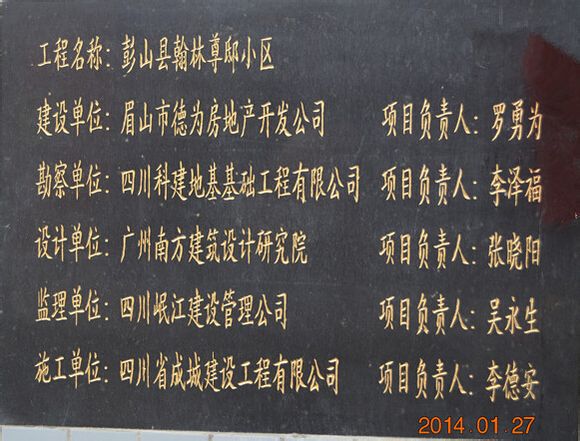 工程名称: 彭山县翰林尊邸小区
建设单位: 眉山市德为房地产开发公司 项目负责人: 罗勇为
勘察单位: 四川科建地基基础工程有限公司 项目负责人: 李泽福
设计单位: 广州南方建筑设计研究院 项目负责人: 张晓阳
监理单位: 四川岷江建设管理公司 项目负责人: 吴永生
施工单位: 四川省成城建设工程有限公司 项目负责人: 李德安
2014.01.27